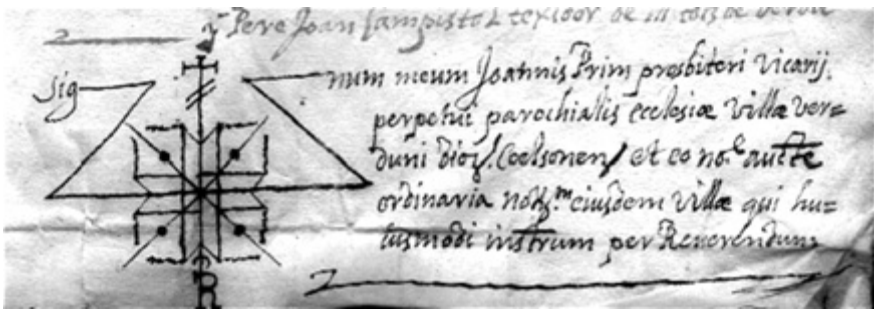 y Pere Joan texidor de
Sig num meum Joannis Prim presbiteri Vicarij
perpetui parochialis Ecclesiæ Villæ Ver=
duni dioc. Coelsonen et eo no.e aucte
ordinaria eiusdem Villæ qui hu=
iusmodi instrum per Reverendum